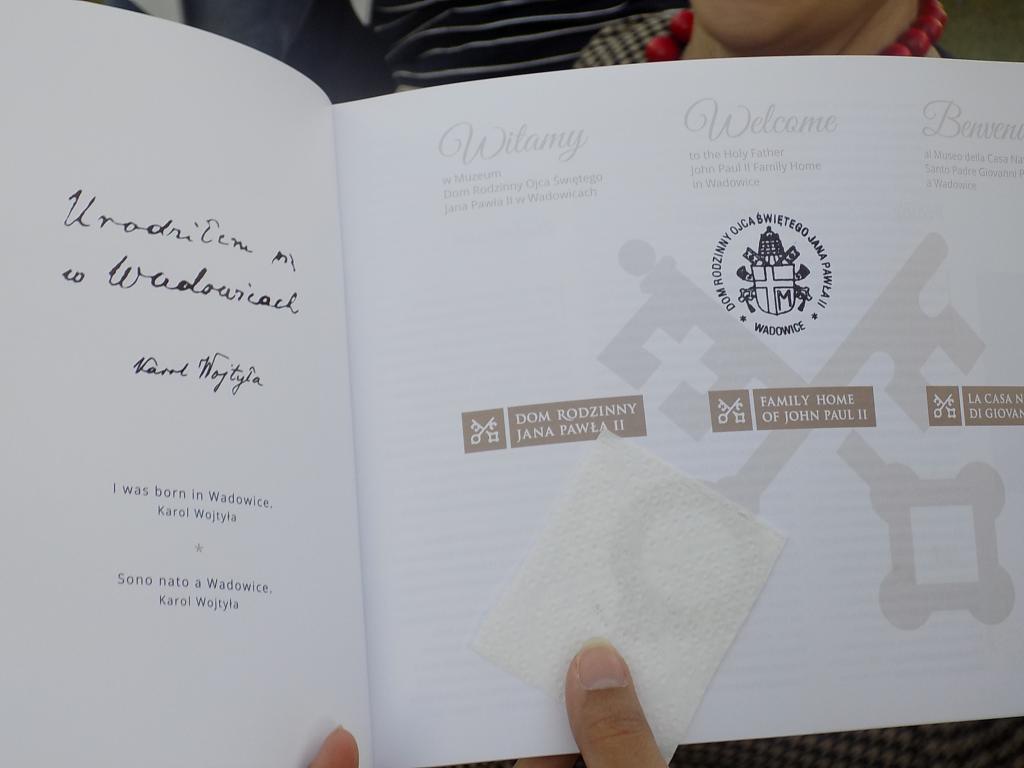 Urodziłem się
w Wadowicach
Karol Wojtyła
I was born in Wadowice,
Karol Wojtyła
*
Sono nato a Wadowice,
Karol Wojtyła
Witamy
w Muzeum
Dom Rodzinny Ojca Świętego
Jana Pawła II w Wadowicach
Welcome
to the Holy Father
John Paul II Family Home
in Wadowice
Benvenu
al Museo della Casa Na
Santo Padre Giovanni P
a Wadowice
DOM RODZINNY OJCA ŚWIĘTEGO JANA PAWŁA II
* WADOWICE *
M
DOM RODZINNY
JANA PAWŁA II
FAMILY HOME
OF JOHN PAUL II
LA CASA N
DI GIOVAN